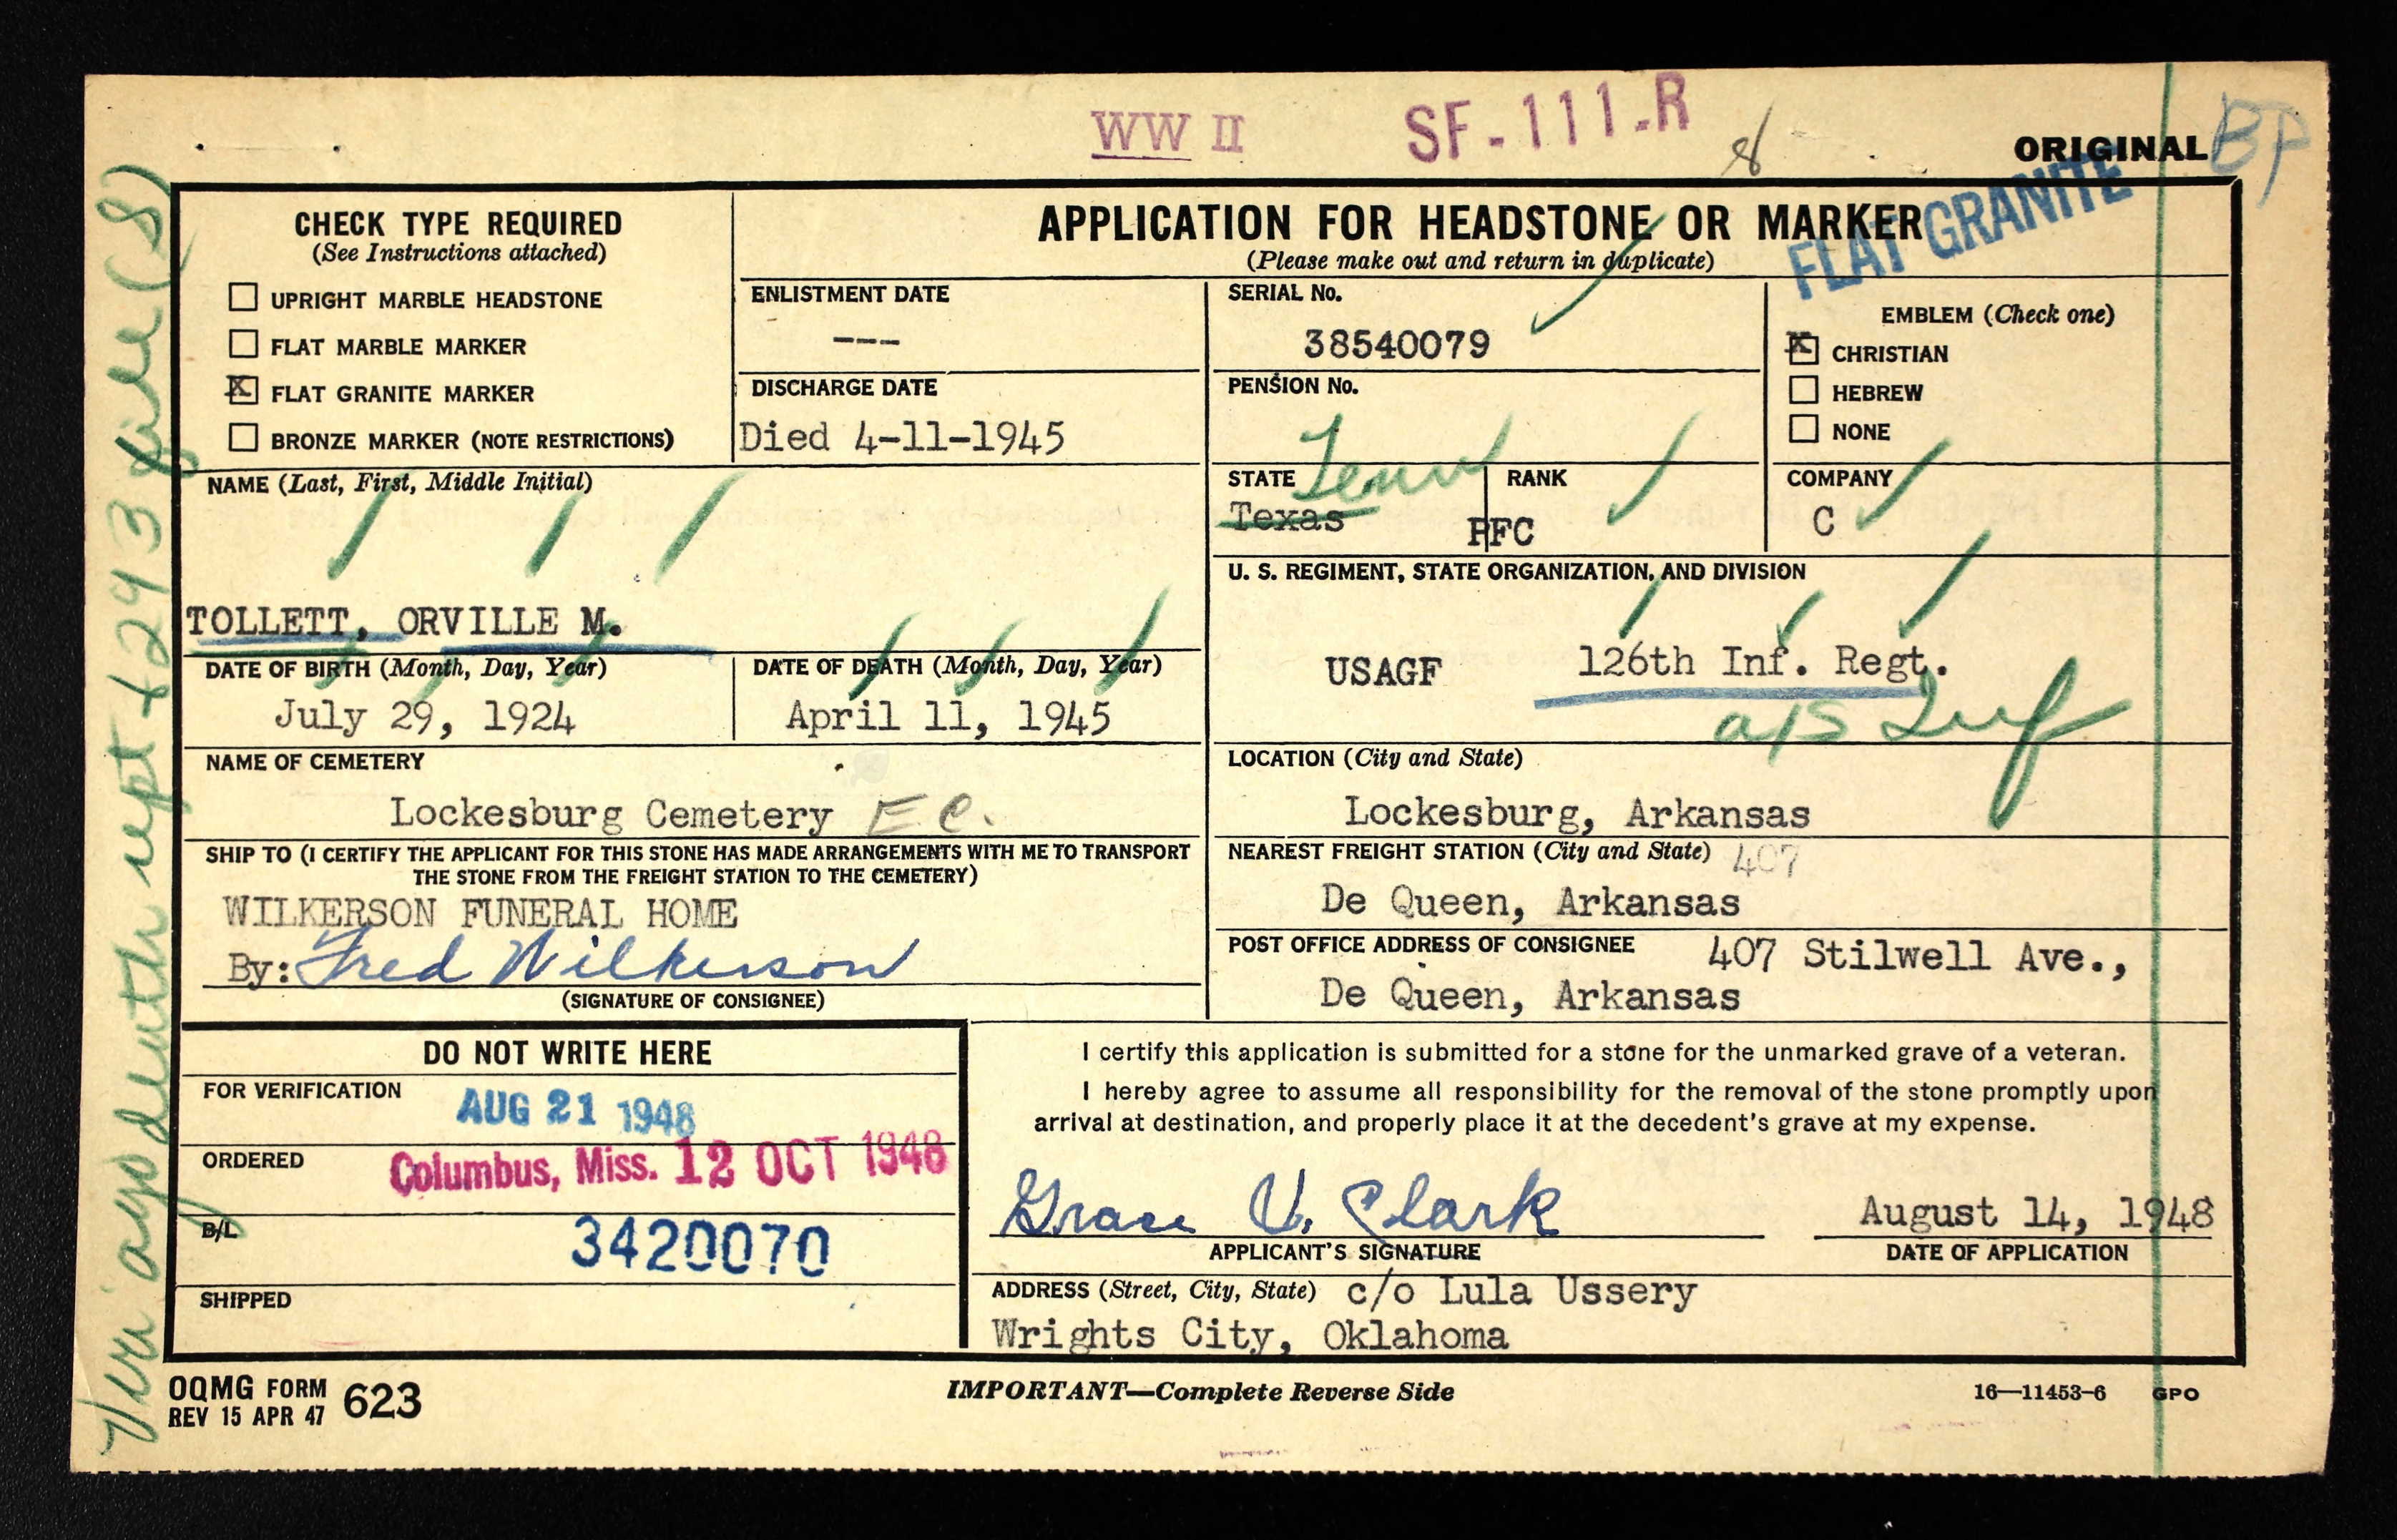 WW II SF-111-R 8
ORIGINAL BP
FLAT GRANITE
CHECK TYPE REQUIRED
(See Instructions attached)
UPRIGHT MARBLE HEADSTONE
FLAT MARBLE MARKER
X FLAT GRANITE MARKER
BRONZE MARKER (NOTE RESTRICTIONS)
APPLICATION FOR HEADSTONE OR MARKER
(Please make out and return in duplicate)
ENLISTMENT DATE
---
DISCHARGE DATE
Died 4-11-1945
SERIAL No.
38540079
PENSION No.
EMBLEM (Check one)
X CHRISTIAN
HEBREW
NONE
NAME (Last, First, Middle Initial)
TOLLETT, ORVILLE M.
STATE Tenn
Texas
RANK
PFC
COMPANY
C
U. S. REGIMENT, STATE ORGANIZATION, AND DIVISION
USAGF 126th Inf. Regt.
a/S Inf
DATE OF BIRTH (Month, Day, Year)
July 29, 1924
DATE OF DEATH (Month, Day, Year)
April 11, 1945
NAME OF CEMETERY
Lockesburg Cemetery E.C.
LOCATION (City and State)
Lockesburg, Arkansas
SHIP TO (I CERTIFY THE APPLICANT FOR THIS STONE HAS MADE ARRANGEMENTS WITH ME TO TRANSPORT
THE STONE FROM THE FREIGHT STATION TO THE CEMETERY)
WILKERSON FUNERAL HOME
By: Fred Wilkerson
(SIGNATURE OF CONSIGNEE)
NEAREST FREIGHT STATION (City and State) 407
De Queen, Arkansas
POST OFFICE ADDRESS OF CONSIGNEE 407 Stilwell Ave.,
De Queen, Arkansas
DO NOT WRITE HERE
FOR VERIFICATION
AUG 21 1948
ORDERED
Columbus, Miss. 12 OCT 1948
B/L
3420070
SHIPPED
I certify this application is submitted for a stone for the unmarked grave of a veteran.
I hereby agree to assume all responsibility for the removal of the stone promptly upon
arrival at destination, and properly place it at the decedent's grave at my expense.
Grace V. Clark
APPLICANT'S SIGNATURE
August 14, 1948
DATE OF APPLICATION
ADDRESS (Street, City, State) c/o Lula Ussery
Wrights City, Oklahoma
OQMG FORM 623
REV 15 APR 47
IMPORTANT—Complete Reverse Side
16—11453-6 GPO
death rept + 293 file (8)